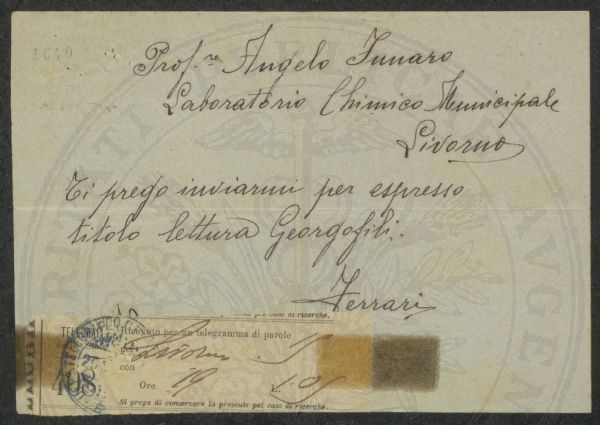 Prof.re Angelo Funaro
Laboratorio Chimico Municipale
Livorno
Ti prego inviarmi per espresso
titolo lettura Georgofili.
Ferrari
pel caso di ricerche.
TELEGRAFI
Ricevuto per un telegramma di parole
per Livorno
con
Ore 19
408
Si prega di conservare la presente pel caso di ricerche.